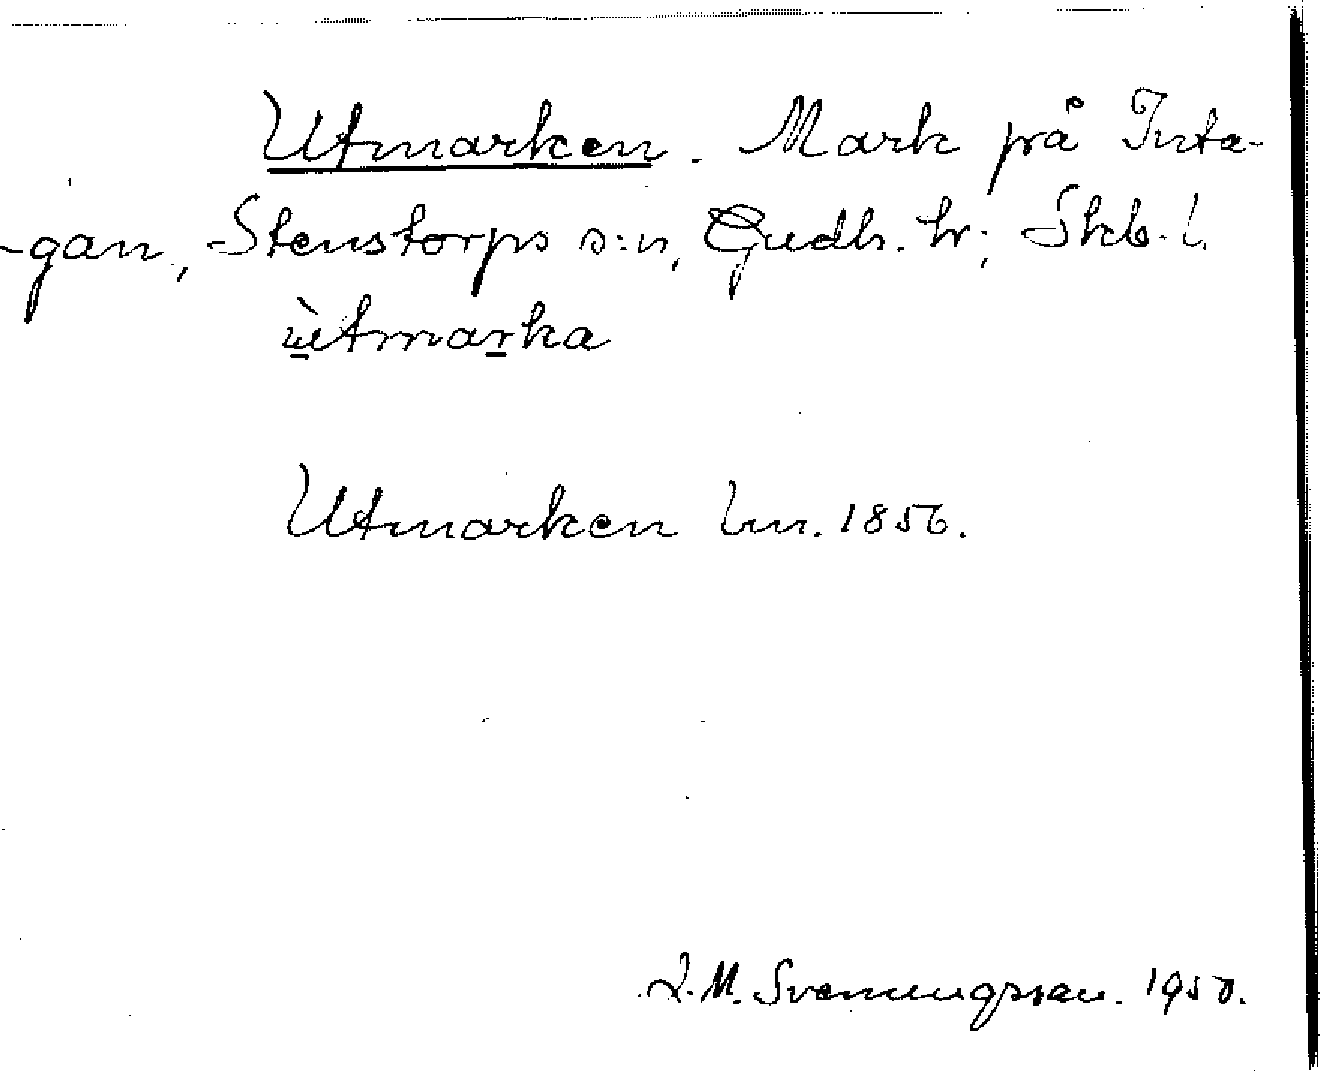 Utmarken. Mark på Inta-
-gan, Stenstorps s:n, Gudh. hr; Skb. l.
ùtmarka
Utmarken Lm. 1856.
M. Svenningsson. 1950.